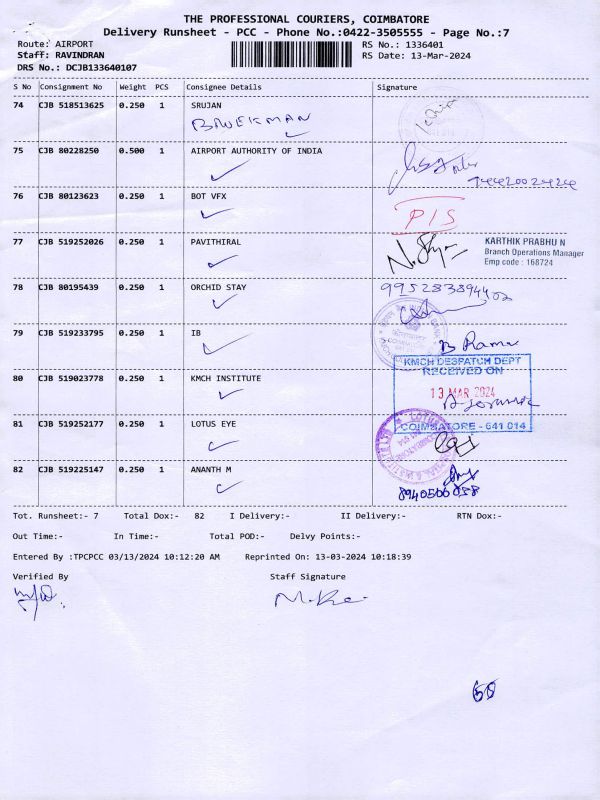 THE PROFESSIONAL COURIERS, COIMBATORE
Delivery Runsheet - PCC - Phone No.:0422-3505555 - Page No.:7
Route: AIRPORT
Staff: RAVINDRAN
DRS No.: DCJB133640107
RS No.: 1336401
RS Date: 13-Mar-2024
S No Consignment No Weight PCS Consignee Details Signature
74 CJB 518513625 0.250 1 SRUJAN
75 CJB 80228250 0.500 1 AIRPORT AUTHORITY OF INDIA
9442002424
76 CJB 80123623 0.250 1 BOT VFX
PIS
77 CJB 519252026 0.250 1 PAVITHIRAL
KARTHIK PRABHU N
Branch Operations Manager
Emp code : 168724
78 CJB 80195439 0.250 1 ORCHID STAY
79 CJB 519233795 0.250 1 IB
B Rama
80 CJB 519023778 0.250 1 KMCH INSTITUTE
KMCH DESPATCH DEPT
RECEIVED ON
13 MAR 2024
COIMBATORE - 641 014
81 CJB 519252177 0.250 1 LOTUS EYE
82 CJB 519225147 0.250 1 ANANTH M
Tot. Runsheet:- 7 Total Dox:- 82 I Delivery:- II Delivery:- RTN Dox:-
Out Time:- In Time:- Total POD:- Delvy Points:-
Entered By :TPCPCC 03/13/2024 10:12:20 AM Reprinted On: 13-03-2024 10:18:39
Verified By Staff Signature